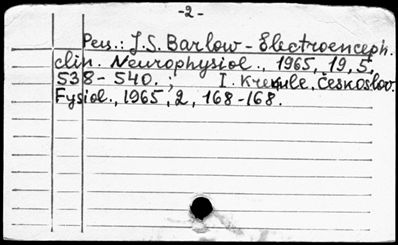 -2-
Рец.: J.S. Barlow - Electroenceph.
clin. Neurophysiol., 1965, 19, 5,
538-540.; I. Krekule. Českoslov.
Fysiol., 1965, 2, 168-168.